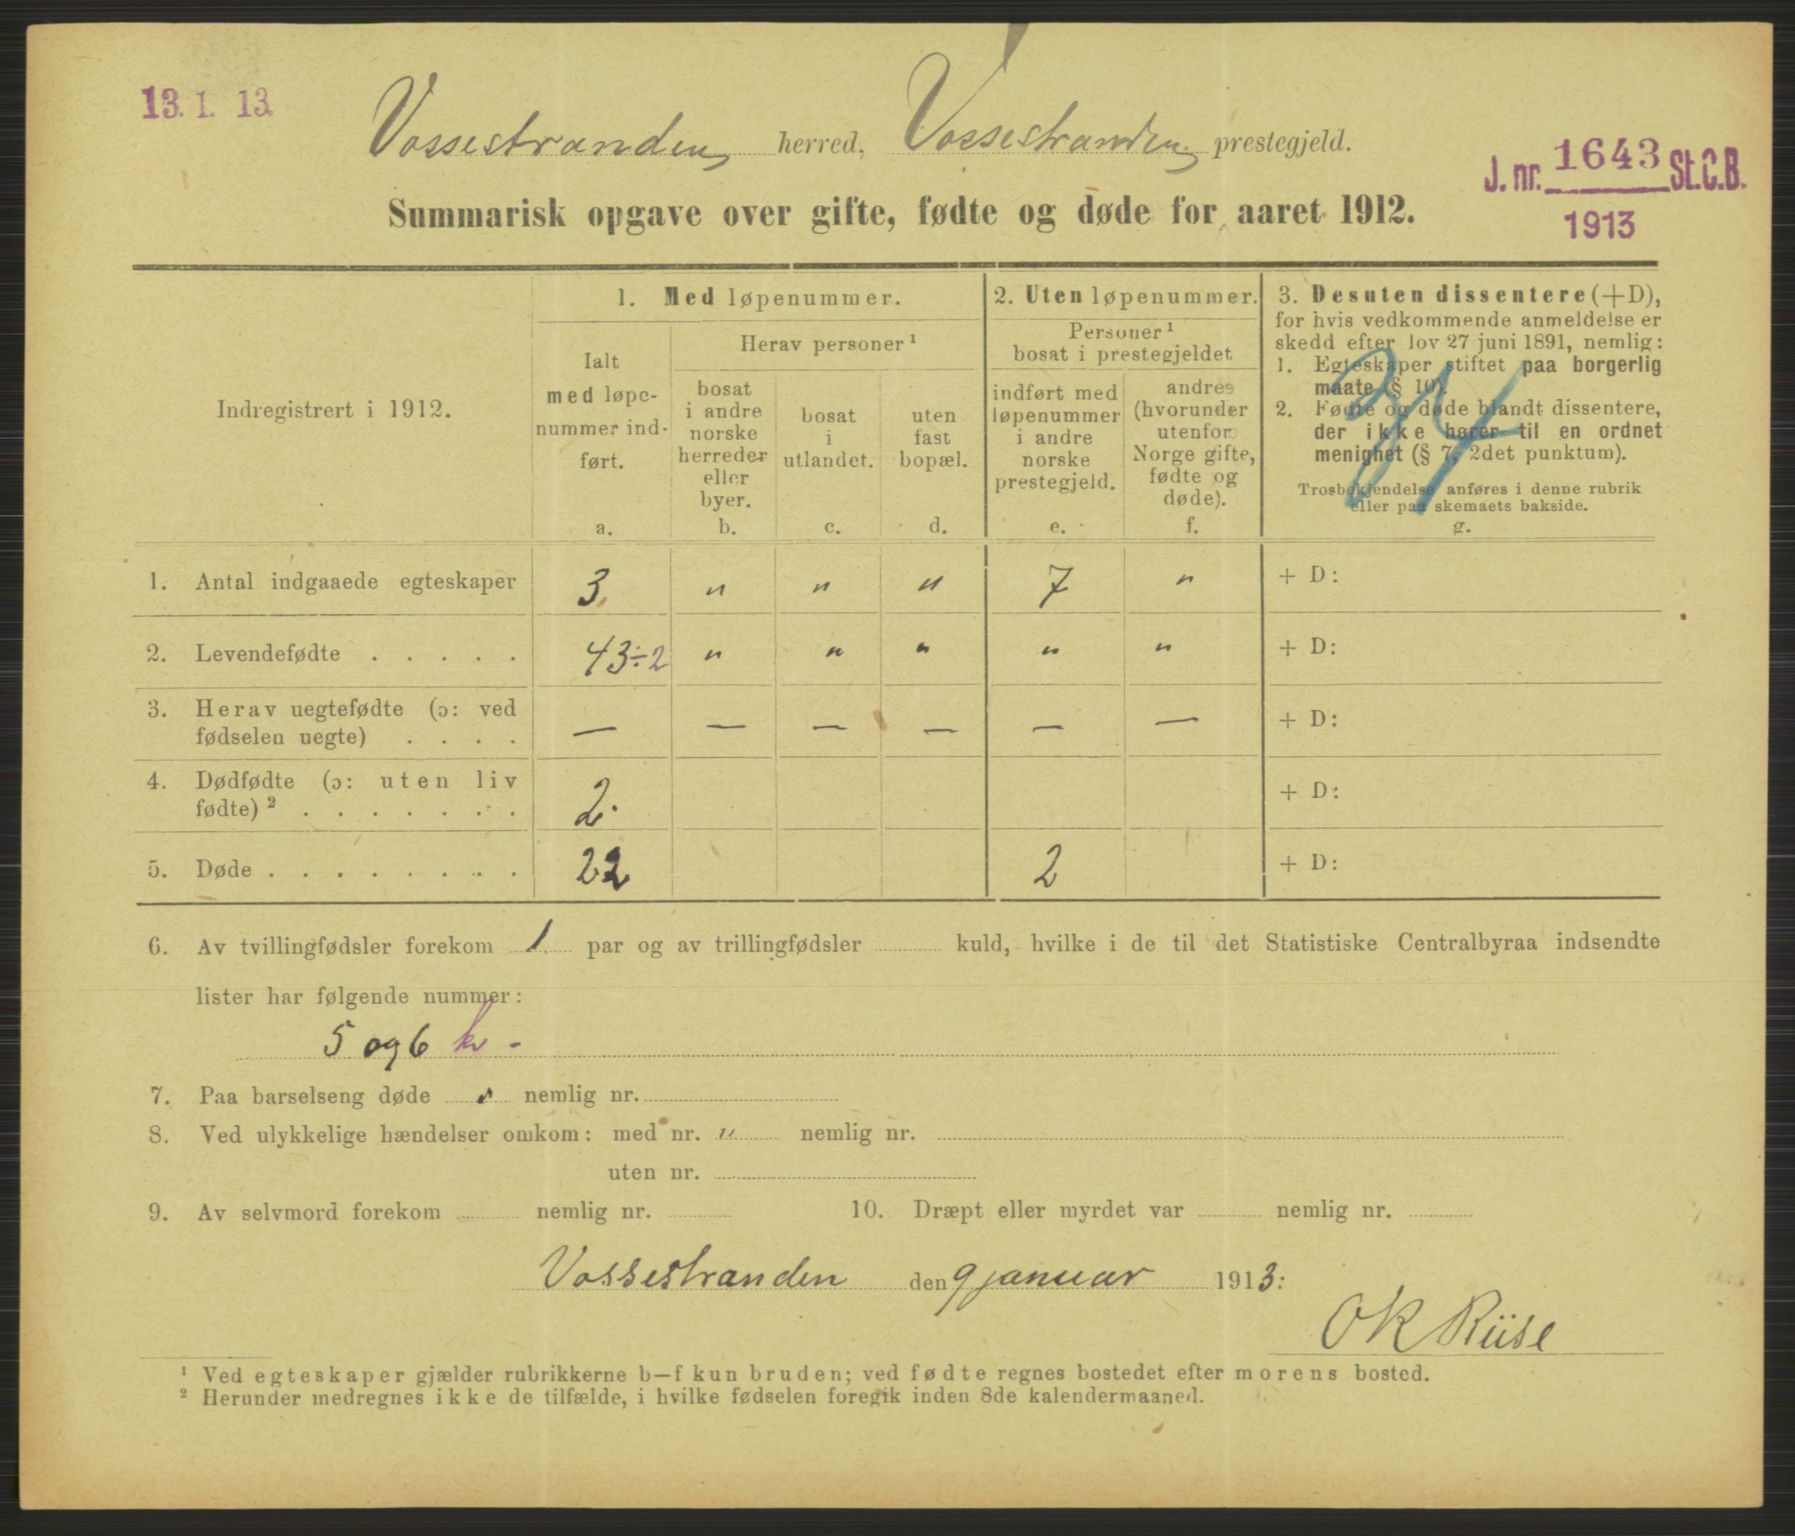 13. 1. 13.
Vossestranden herred, Vossestranden prestegjeld.
J. nr. 1643 St.C.B.
1913
Summarisk opgave over gifte, fødte og døde for aaret 1912.
Indregistrert i 1912.
1. Med løpenummer.
Ialt
med løpe-
nummer ind-
ført.
a.
Herav personer¹
bosat
i andre
norske
herreder
eller
byer.
b.
bosat
i
utlandet.
c.
uten
fast
bopæl.
d.
2. Uten løpenummer.
Personer¹
bosat i prestegjeldet
indført med
løpenummer
i andre
norske
prestegjeld.
e.
andre
(hvorunder
utenfor
Norge gifte,
fødte og
døde).
f.
3. Desuten dissentere (+D),
for hvis vedkommende anmeldelse er
skedd efter lov 27 juni 1891, nemlig:
1. Egteskaper stiftet paa borgerlig
maate (§ 10).
2. Fødte og døde blandt dissentere,
der ikke hører til en ordnet
menighet (§ 7, 2det punktum).
Trosbekjendelse anføres i denne rubrik
eller paa skemaets bakside.
g.
1. Antal indgaaede egteskaper 3. " " " 7 " + D:
2. Levendefødte . . . . . 43÷2 " " " " " + D:
3. Herav uegtefødte (ɔ: ved
fødselen uegte) . . . . — — — — — — + D:
4. Dødfødte (ɔ: uten liv
fødte)² . . . . . . . 2. + D:
5. Døde . . . . . . . . 22 2 + D:
6. Av tvillingfødsler forekom 1 par og av trillingfødsler kuld, hvilke i de til det Statistiske Centralbyraa indsendte
lister har følgende nummer:
5 og 6 kv -
7. Paa barselseng døde nemlig nr.
8. Ved ulykkelige hændelser omkom: med nr. " nemlig nr.
uten nr.
9. Av selvmord forekom nemlig nr. 10. Dræpt eller myrdet var nemlig nr.
Vossestranden den 9 januar 1913:
OK Riise
¹ Ved egteskaper gjælder rubrikkerne b—f kun bruden; ved fødte regnes bostedet efter morens bosted.
² Herunder medregnes ikke de tilfælde, i hvilke fødselen foregik inden 8de kalendermaaned.